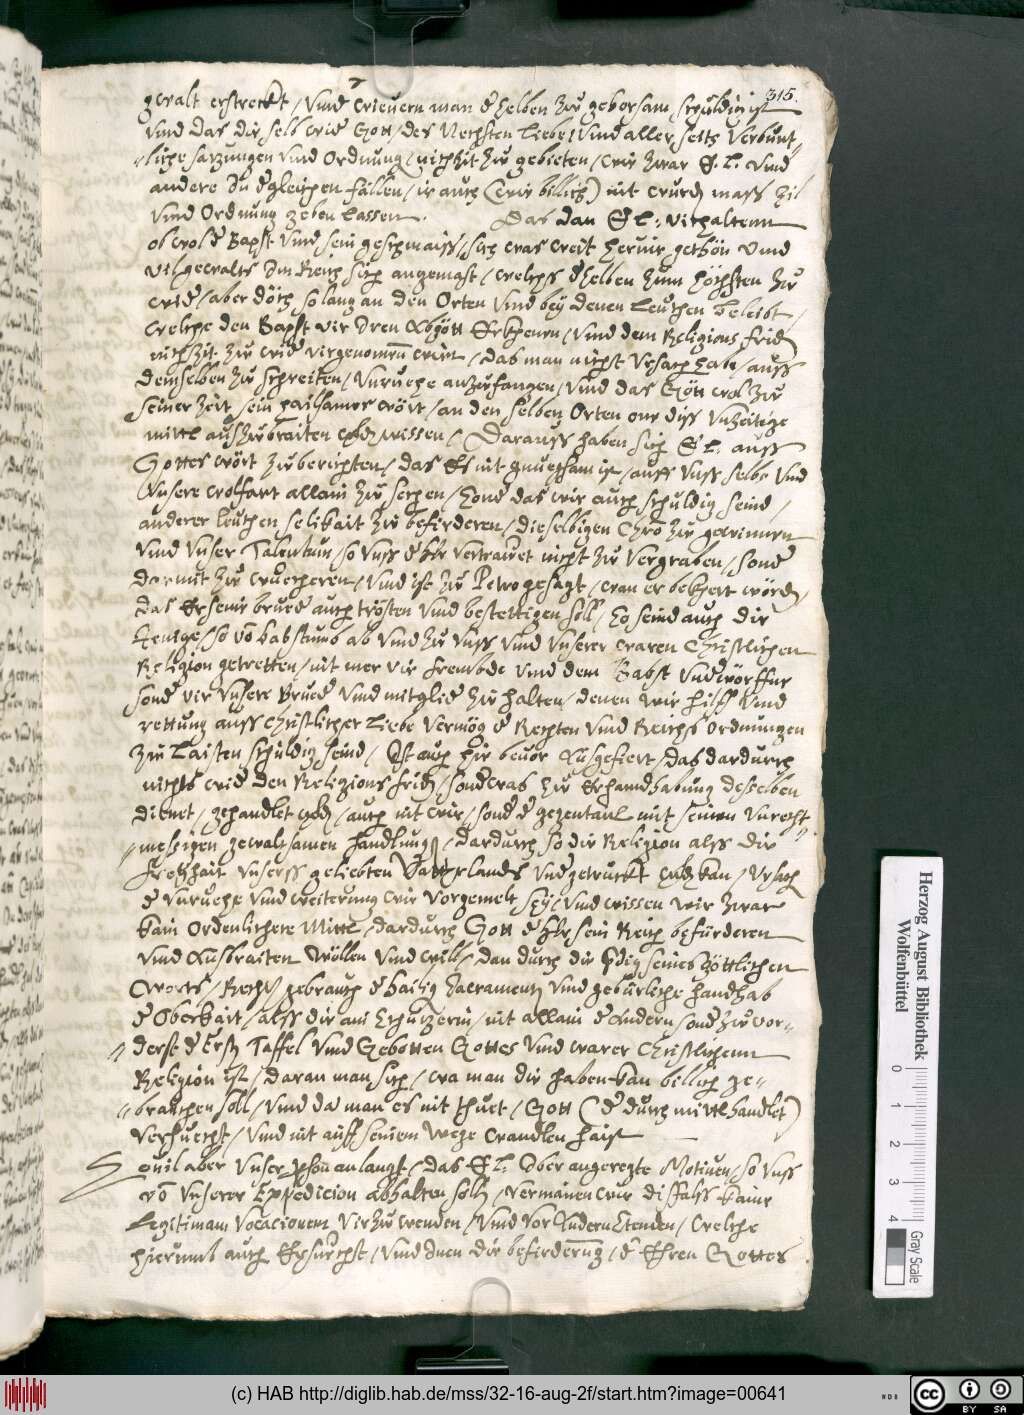 315.
gwalt erstreckt / vnnd wieuern man derselben zu gehorsam schuldig ist
vnnd das dieselb wider Gott / des Nechsten Liebe / vnnd allerseits verbunt-
liche satzungen vnnd Ordnung / nichtzit zu gebieten / wir zwar E. L. vnnd
andere In dergleichen fällen / ir auch (wie billich) mit wurd mass zil
vnnd Ordnung geben lassen. Das dan E L: vnhaltenn
obwol der Bapst vnnd sein geschmaiss / sich was weit herfür gethon vnnd
vil gewalts Im Reich sich angemast / welchs derselben zum höchsten zu
wider / aber doch so lang an den Orten vnnd bey denen Leuthen beleibt /
welche den Bapst vir Iren Abgott Erkhenen / vnnd dem Religions friden
nichtzit zu wider virgenomen wirt / das man nicht vrsach hab / auss
demselben zu schreiten / vnruehe anzufangen / vnnd das Gott wol zu
seiner Zeit sein hailsames wort / an den selben Orten one diss vnzeitige
mittel auszubraiten werde wissen / Darauss haben sich E L: auss
Gottes wort zu berichten / das Es nit gnuegsam ist / auff vnss selbs vnd
vnsere wolfart allain zu sechen / sonder das wir auch schuldig seind /
anderer leuthen selikait zu befirderen / dieselbigen Christo zu gewinnen
vnnd vnser Talentum / so vnss der Herr vertrawet nicht zu vergraben / sonder
darmit zu wuecheren / vnnd ist zu Petro gesagt / wan er bekhert würde /
das Er seine brueder auch trösten vnnd bestettigen soll / So seind auch die
henige / so von babstumb ab vnnd zu vnss vnnd vnserer waren Christlichen
Religion getretten / nit mer vir frembde vnnd dem Babst vnderworffne
sonder vir vnsere brueder vnnd mitglider zu halten / denen wir hilff vnnd
rettung auss Christlicher Liebe vermög der Rechten vnnd Reichs Ordnungen
zu Laisten schuldig seind / Ist auch hie beuor Ausgefiert / das dardurch
nichts wider den Religions friden / sonder was zu Erhandhabung desselben
dienet / gehandlet werde / auch nit wir / sonder der gegentail mit seinen vnrecht-
messigen gewaltsamen handlungen / dardurch so die Religion alss die
Freyhait vnserss geliebten Vatterlands vndgetruckt werden kan / vrsach
der vnruehe vnnd weiterung wie vorgemelt sey / vnnd wissen wir zwar
kain Ordenlichere Mittel / dardurch Gott der Herr sein Reich befürderen
vnnd Ausbraiten wöllen vnnd will / dan durch die predig seines Göttlichen
Worts / Recht gebrauch der hailigen Sacramenten vnnd gebürliche handhab
der Oberkait / alss die ain Schutzerin / nit allain der Andern sonder zu vor-
derst der Ersten Taffel vnnd Gebotten Gottes vnnd warer Christlichenn
Religion ist / daran man sich / wa man die haben kan billich ge-
brauchen soll / vnnd da man es nit thuet / Gott (der durch mittel handlet)
versuecht / vnnd nit auff seinem Wege wandlen haist
Souil aber vnser person anlangt / das E L: Ober angeregte Motiuen / so vnss
von vnserer Expedicion abhalten solten / vermainen wir dissfalss kaine
Legitimam Vocacionem virzuwenden / vnnd vor Andern Stenden / welche
hierumb auch Ersuecht / vnnd Inen die befirderung / der Ehren Gottes
Herzog August Bibliothek
Wolfenbüttel
0 1 2 3 4
Gray Scale
(c) HAB http://diglib.hab.de/mss/32-16-aug-2f/start.htm?image=00641
WDB
cc BY SA